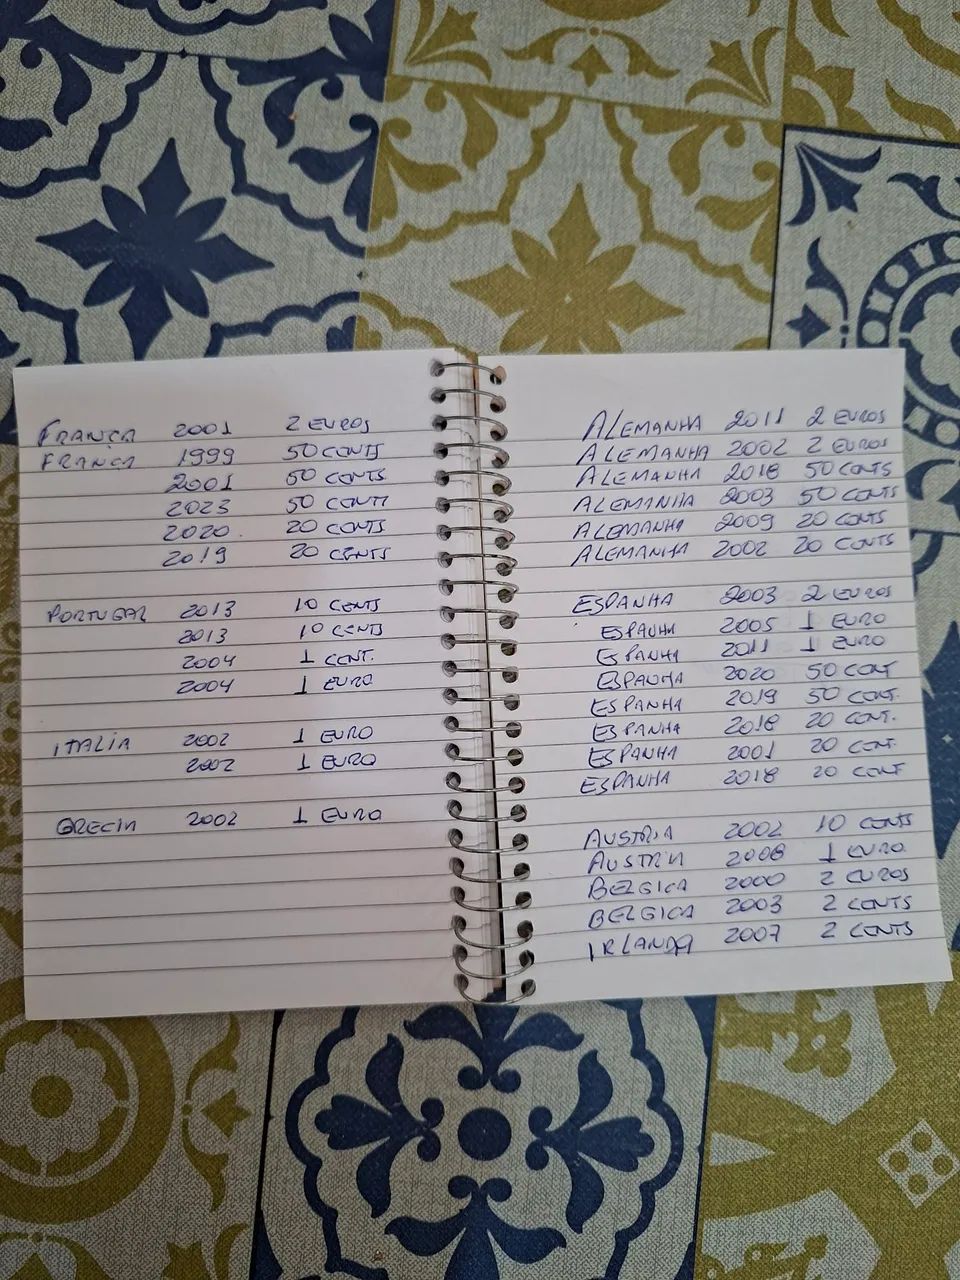 FRANÇA 2001 2 EUROS
FRANÇA 1999 50 CENTS
2001 50 CENTS
2023 50 CENTS
2020. 20 CENTS
2019 20 CENTS
PORTUGAL 2013 10 CENTS
2013 10 CENTS
2004 1 CENT.
2004 1 EURO
ITALIA 2002 1 EURO
2002 1 EURO
GRECIA 2002 1 EURO
ALEMANHA 2011 2 EUROS
ALEMANHA 2002 2 EUROS
ALEMANHA 2018 50 CENTS
ALEMANHA 2003 50 CENTS
ALEMANHA 2009 20 CENTS
ALEMANHA 2002 20 CENTS
ESPANHA 2003 2 EUROS
ESPANHA 2005 1 EURO
ESPANHA 2011 1 EURO
ESPANHA 2020 50 CENT
ESPANHA 2019 50 CENT.
ESPANHA 2018 20 CENT.
ESPANHA 2001 20 CENT.
ESPANHA 2018 20 CENT
AUSTRIA 2002 10 CENTS
AUSTRIA 2008 1 EURO
BELGICA 2000 2 EUROS
BELGICA 2003 2 CENTS
IRLANDA 2007 2 CENTS